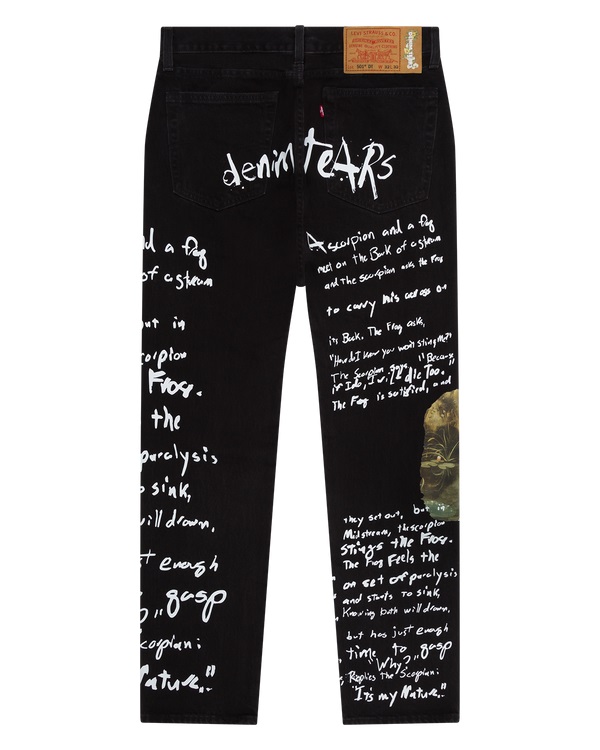 LEVI STRAUSS & CO.
denim teARs
nd a frog
of a stream
out in
corpion
Frog.
the
paralysis
sink,
will drown,
st enough
gasp
Scorpian:
Nature."
A scorpion and a frog
meet on the Bank of a stream
and the scorpian asks the frog
to carry him across on
its Back. The Frog asks,
"How do I know you won't sting Me?"
The Scorpian says, "Because
if I do, I will die Too."
The Frog is satisfied, and
they set out, but in
Midstream, the scorpion
Stings the Frog.
The Frog Feels the
on set of paralysis
and starts to sink,
Knowing both will drown,
but has just enough
time to gasp
"Why?"
Replies the Scorpian:
"It's my Nature."